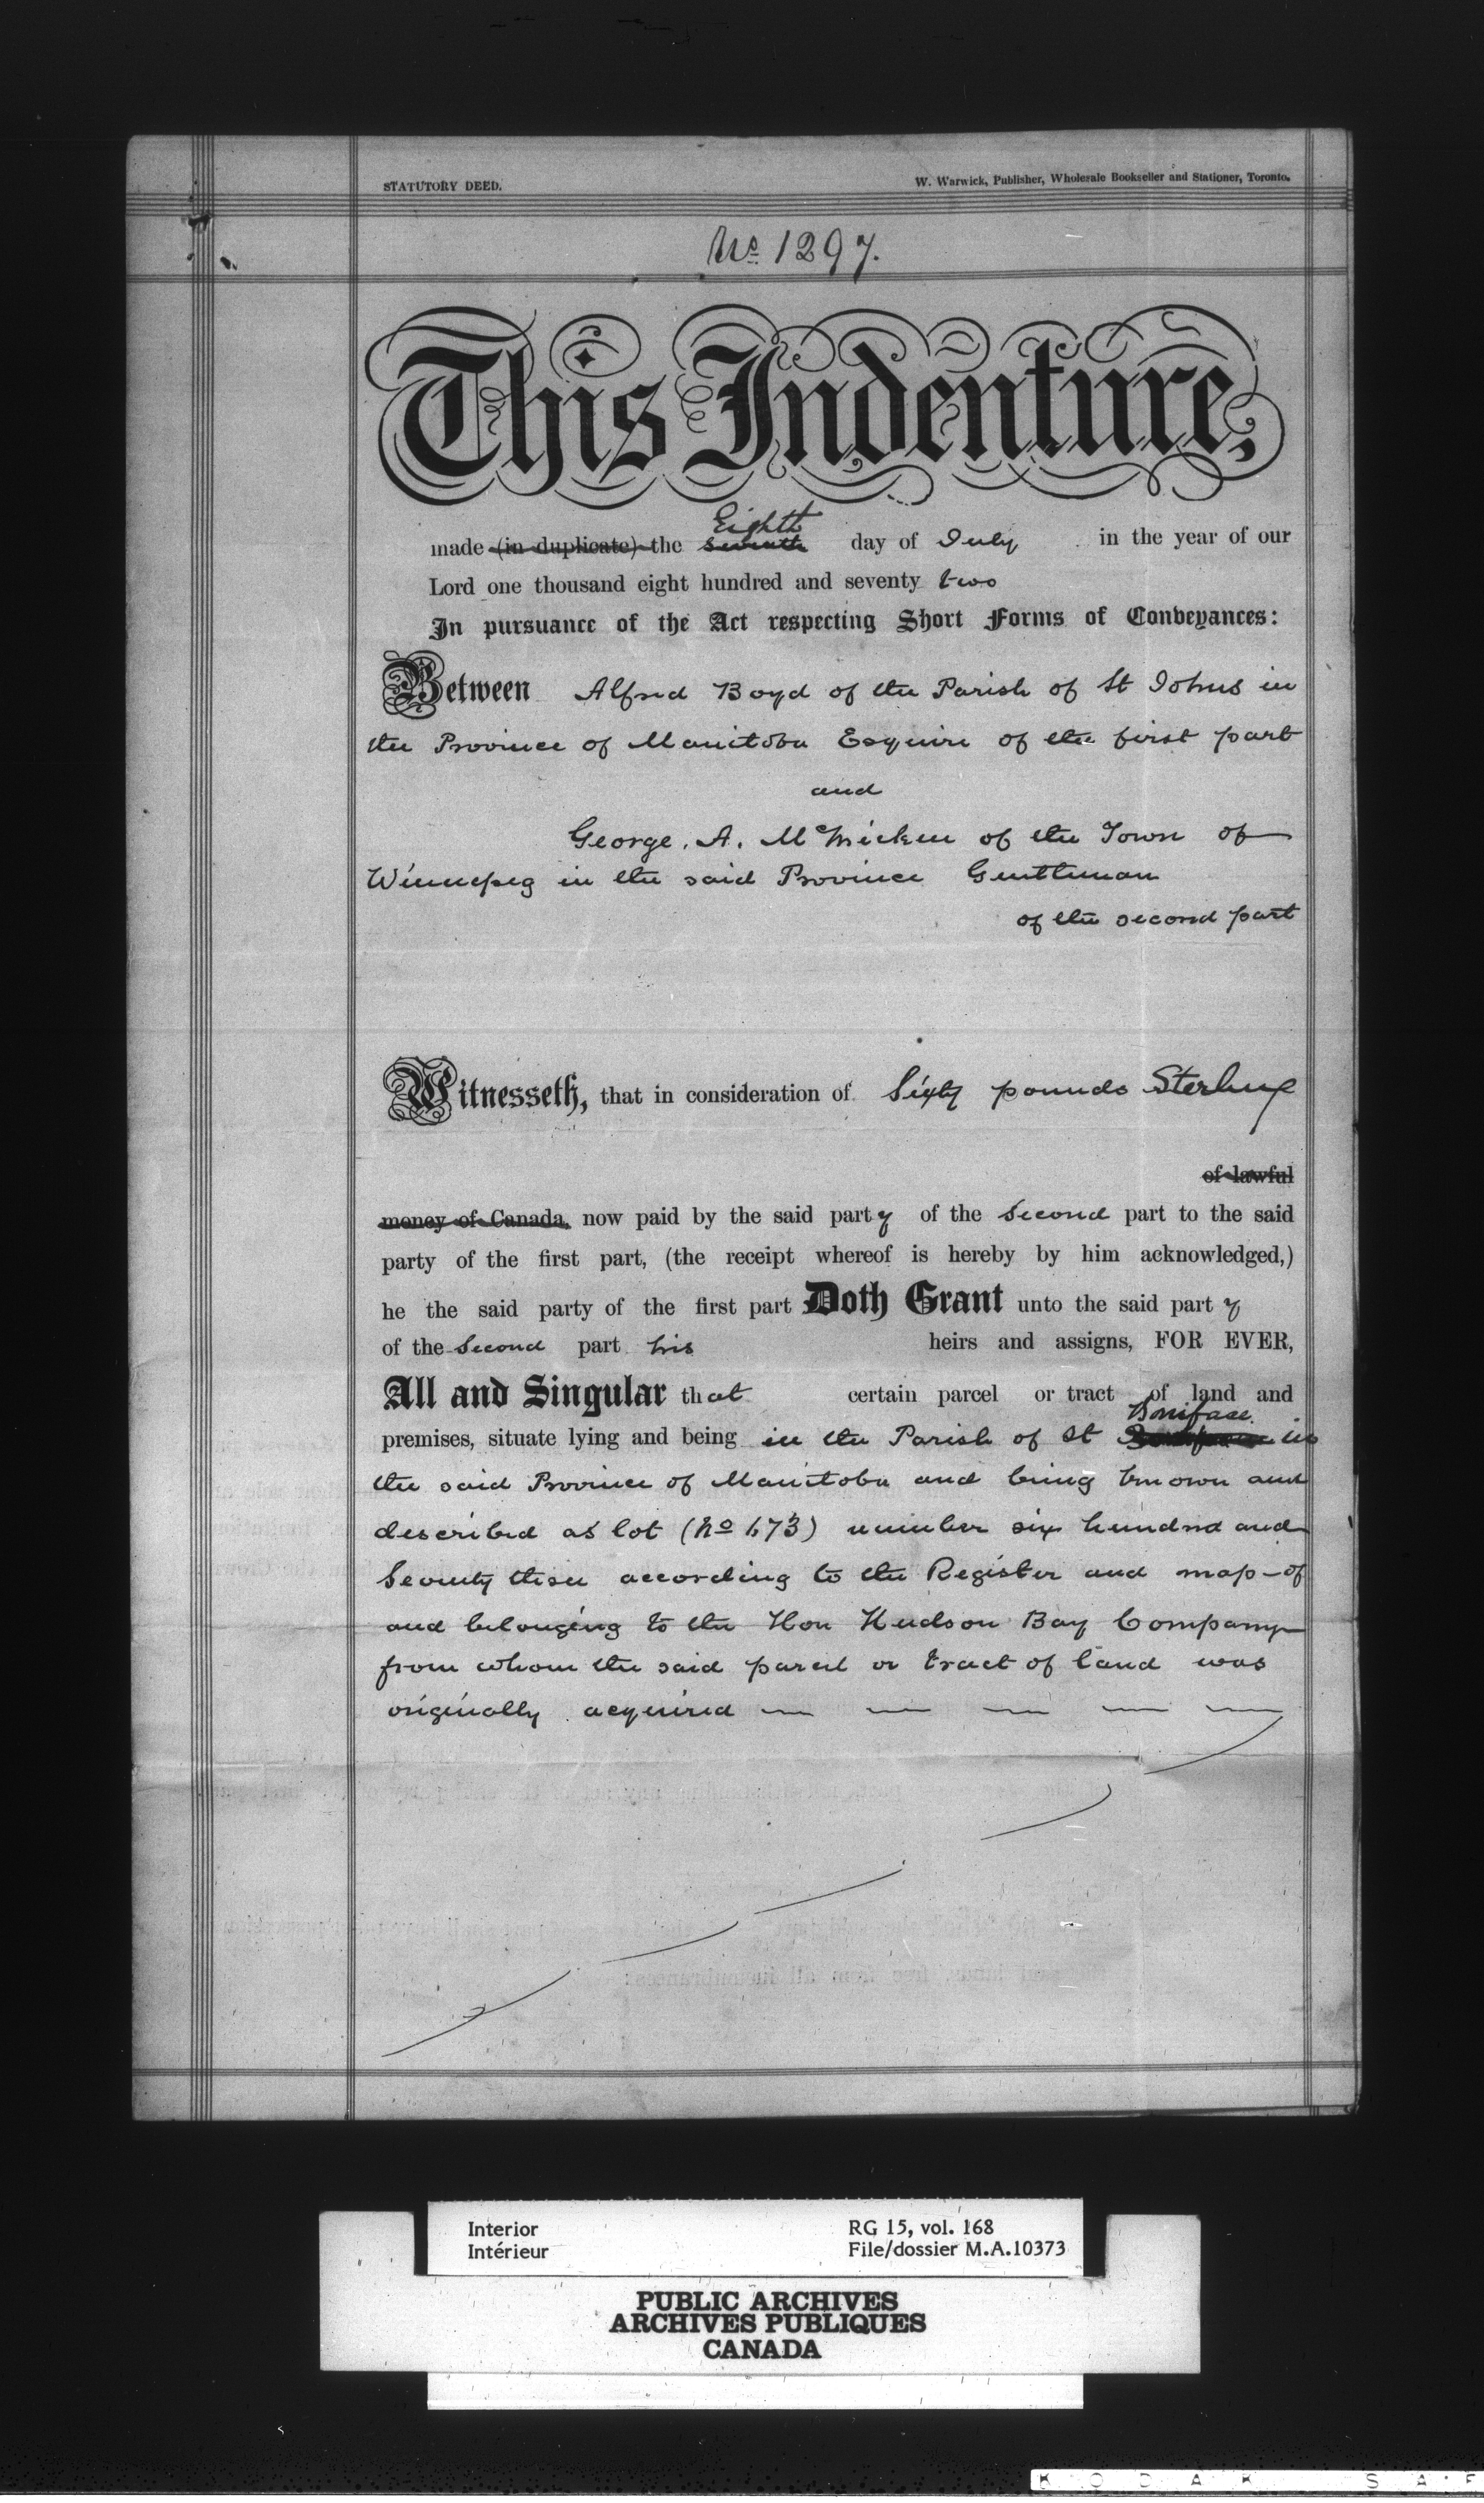 STATUTORY DEED.
W. Warwick, Publisher, Wholesale Bookseller and Stationer, Toronto.
No 1297.
This Indenture,
Eighth
made (in duplicate) the seventh day of July in the year of our
Lord one thousand eight hundred and seventy two
In pursuance of the Act respecting Short Forms of Conveyances:
Between Alfred Boyd of the Parish of St Johns in
the Province of Manitoba Esquire of the first part
and
George. A. McMicken of the Town of
Winnepeg in the said Province Gentleman
of the second part
Witnesseth, that in consideration of Sixty pounds Sterling
of lawful
money of Canada, now paid by the said party of the second part to the said
party of the first part, (the receipt whereof is hereby by him acknowledged,)
he the said party of the first part Doth Grant unto the said party
of the second part his heirs and assigns, FOR EVER,
All and Singular that certain parcel or tract of land and
Boniface.
premises, situate lying and being in the Parish of St in
the said Province of Manitoba and being known and
described as lot (No 673) number six hundred and
Seventy three according to the Register and map of
and belonging to the Hon Hudson Bay Company
from whom the said parcel or tract of land was
originally acquired — — — — —
Interior
Intérieur
RG 15, vol. 168
File/dossier M.A.10373
PUBLIC ARCHIVES
ARCHIVES PUBLIQUES
CANADA
KODAK SAF